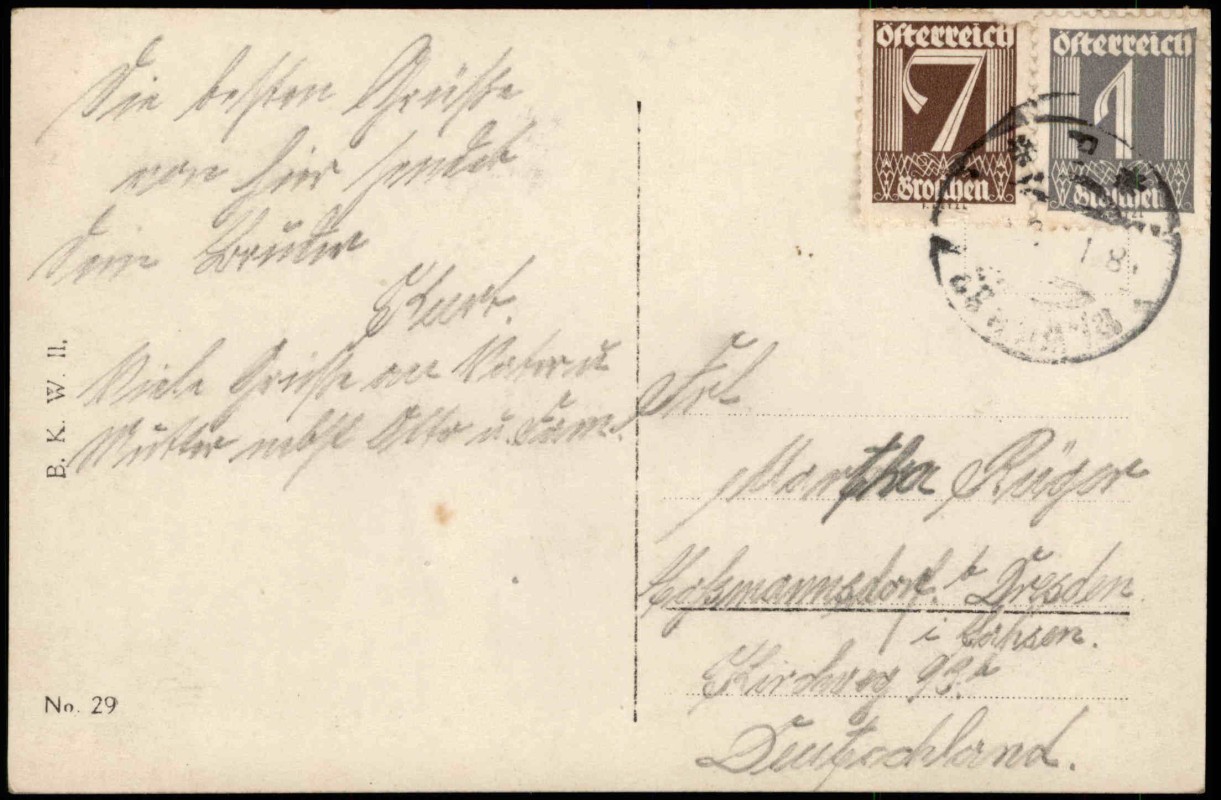 Die besten Grüße
von hier sendet
Dein Bruder
Kurt.
Viele Grüße an Vater u
Mutter nebst Otto u. Fam.
B. K. W. II.
No. 29
Österreich
7
Groschen
Österreich
1
Groschen
Frl
Martha Rüger
b Dresden
i Sachsen.
Kirchweg 93b
Deutschland.